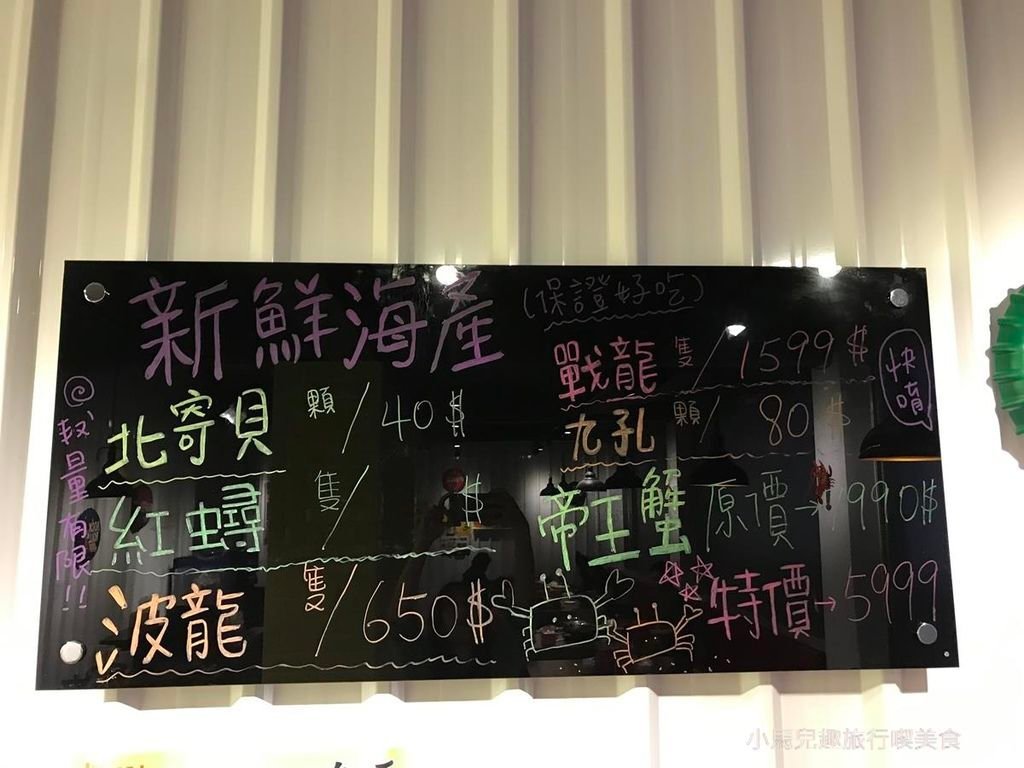 新鮮海產
(保證好吃)
數量有限!!
北寄貝 顆/40$
紅蟳 隻/ $
波龍 隻/650$
戰龍 隻/1599$
九孔 顆/80$
帝王蟹 原價→7990$
特價→5999
快唷
小馬兒趣旅行喫美食